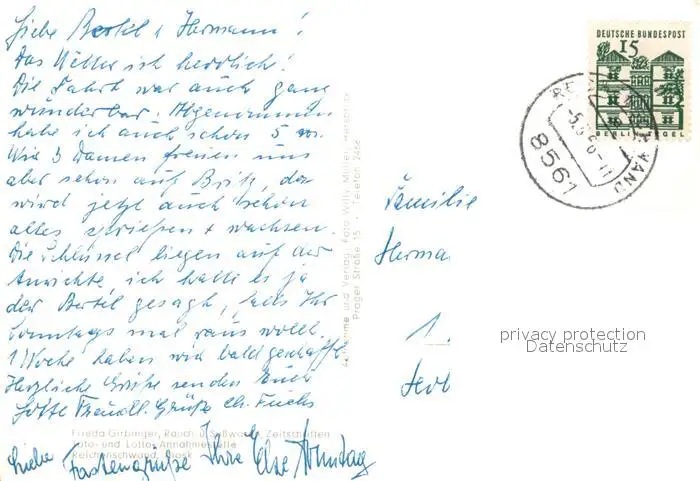 Liebe Bertel u. Hermann!
Das Wetter ist herrlich!
Die Fahrt war auch ganz
wunderbar. Abgenommen
habe ich auch schon 5
Wir 3 Damen freuen uns
aber schon auf Britz, da
wird jetzt auch schon
alles spriessen + wachsen.
Die Schlüssel liegen auf der
Anrichte, ich hatte es ja
der Bertel gesagt, falls Ihr
Sonntags mal raus wollt.
1 Woche haben wir bald geschafft
Herzliche Grüße senden Euch
Lotte Freundl. Grüße Ch. Fuchs
Liebe Fastengrüße Ihre Else
Frieda Girbinger, Rauch- u. Süßwaren, Zeitschriften
Toto- und Lotto-Annahmestelle
Reichenschwand, Kiosk
Aufnahme und Verlag: Foto Willy Müller,
Prager Straße 15 · Telefon 2466
DEUTSCHE BUNDESPOST
15
BERLIN TEGEL
8561
Familie
Herma
1.
privacy protection
Datenschutz